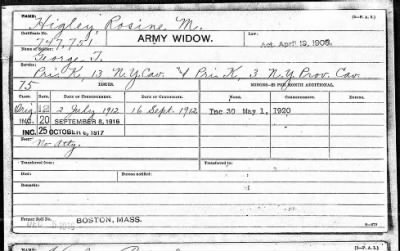 NAME: (3—P. A. S.)
Higley, Rosine M.
Certificate No. Law:
747,751 ARMY WIDOW. Act April 19, 1908.
Name of Soldier:
George T.
Service:
Pri. K, 13 N.Y. Cav. & Pri. K, 3 N.Y. Prov. Cav.
75 ISSUE. MINORS—$2 PER MONTH ADDITIONAL.
CLASS. RATE. DATE OF COMMENCEMENT. DATE OF CERTIFICATE. COMMENCING. ENDING.
Orig 12 2 July 1912 16 Sept. 1912 Inc 30 May 1, 1920
INC. 20 SEPTEMBER 8, 1916
INC. 25 OCTOBER 6, 1917
Fees:
No Atty.
Transferred from: Transferred to:
Deaths: Bureau notified:
Remarks:
Former Roll No.
BOSTON, MASS.
NAME: (3—P. A. S.)